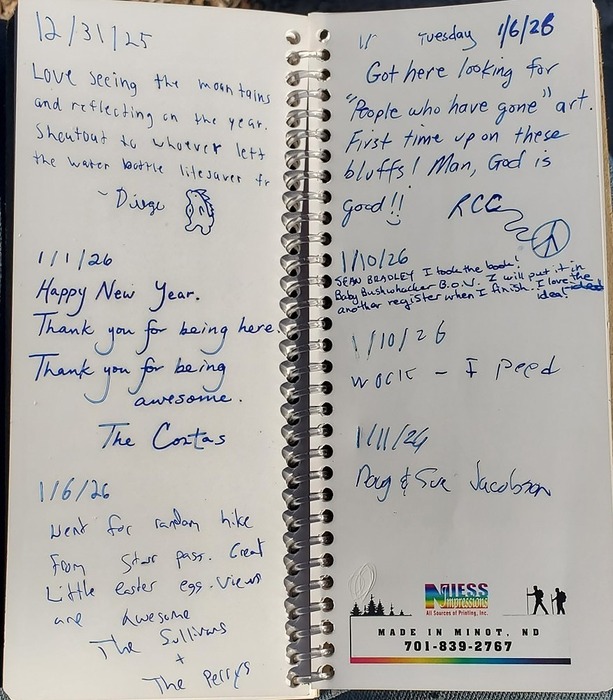 12/31/25
Love seeing the mountains
and reflecting on the year.
Shoutout to whoever left
the water bottle lifesaver fr
~ Diego
1/1/26
Happy New Year.
Thank you for being here.
Thank you for being
awesome.
The Contas
1/6/26
Went for random hike
From Starr pass. Great
Little easter egg. Views
are Awesome
The Sullivans
+
The Perrys
Tuesday 1/6/26
Got here looking for
"People who have gone" art.
First time up on these
bluffs! Man, God is
good!! RCC
1/10/26
SEAN BRADLEY I took the book!
Baby Bushwhacker B.O.V. I will put it in
another register when I finish. I love the
idea!
1/10/26
wock - I peed
1/11/26
Doug & Sue Jacobson
NIESS
Impressions
All Sources of Printing, Inc.
MADE IN MINOT, ND
701-839-2767